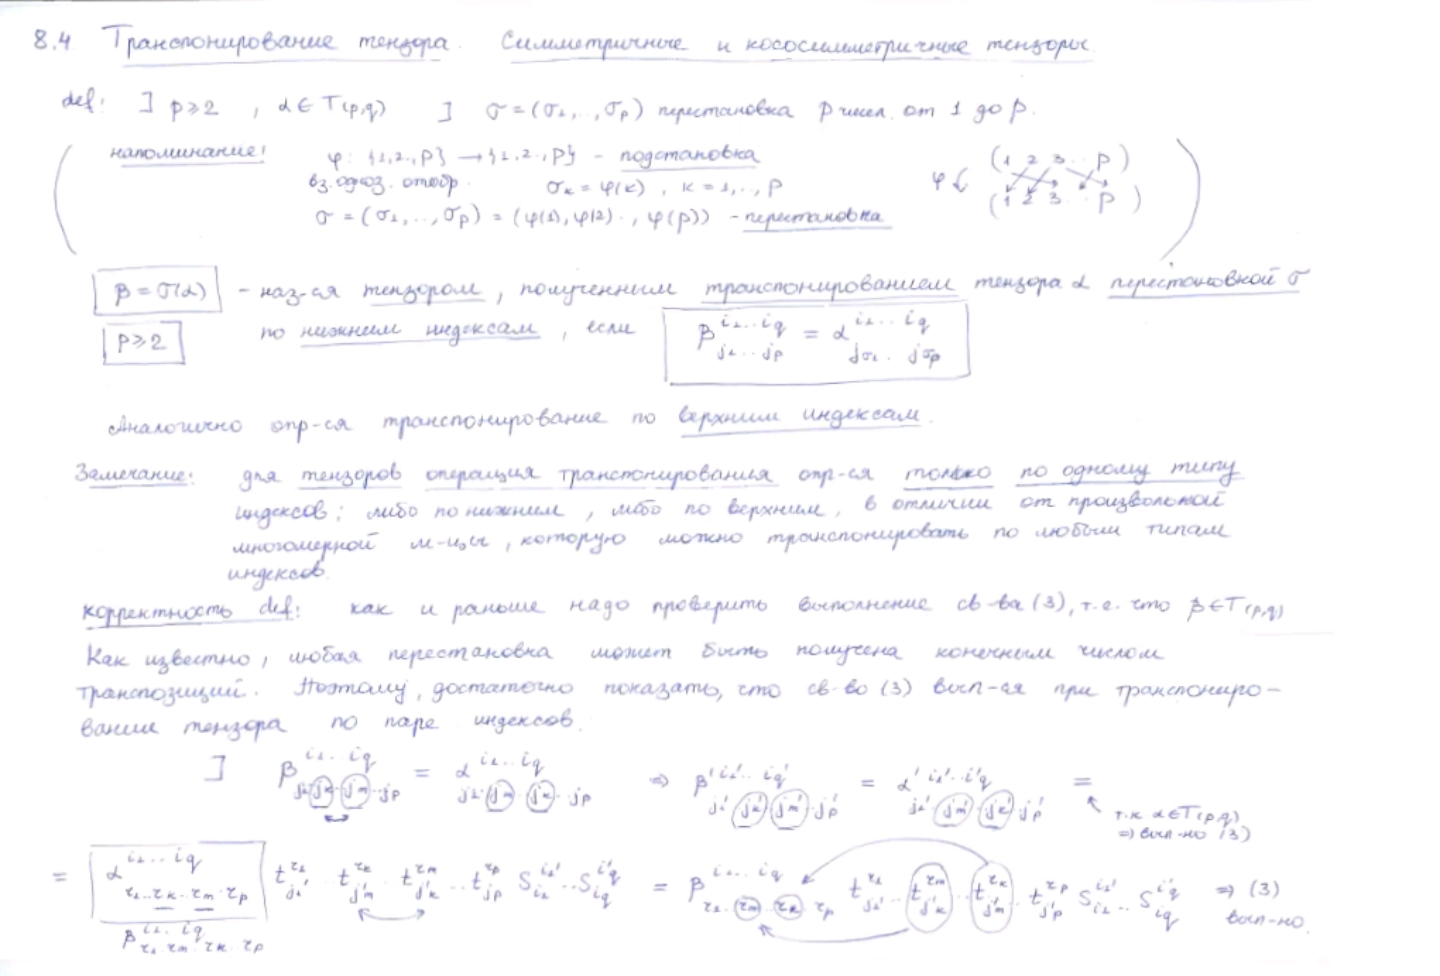 8.4 Транспонирование тензора. Симметричные и кососимметричные тензоры.
def: ] p⩾2 , α ∈ T(p,q) ] σ = (σ₁,..,σₚ) перестановка p чисел от 1 до p.
напоминание: φ: {1,2..,p} → {1,2..,p} - подстановка
вз. однозн. отобр. σₖ = φ(k) , k = 1,..,p
σ = (σ₁,..,σₚ) = (φ(1), φ(2)., φ(p)) - перестановка
φ (1 2 3 .. p)
(1 2 3 .. p)
β = σ(α) - наз-ся тензором, полученным транспонированием тензора α перестановкой σ
p⩾2 по нижним индексам, если β^{i₁...i_q}_{j₁...j_p} = α^{i₁...i_q}_{j_{σ₁}...j_{σ_p}}
Аналогично опр-ся транспонирование по верхним индексам.
Замечание: для тензоров операция транспонирования опр-ся только по одному типу
индексов: либо по нижним, либо по верхним, в отличии от произвольной
многомерной м-цы, которую можно транспонировать по любым типам
индексов.
корректность def: как и раньше надо проверить выполнение св-ва (3), т.е. что β∈T(p,q)
Как известно, любая перестановка может быть получена конечным числом
транспозиций. Поэтому, достаточно показать, что св-во (3) вып-ся при транспониро-
вании тензора по паре индексов.
] β^{i₁...i_q}_{j₁.j_k.j_m..j_p} = α^{i₁...i_q}_{j₁.j_m.j_k.j_p} ⇒ β'^{i₁'...i_q'}_{j₁'.j_k'.j_m'.j_p'} = α'^{i₁'...i_q'}_{j₁'.j_m'.j_k'.j_p'} =
т.к α∈T(p,q)
⇒ вып-но (3)
= α^{i₁...i_q}_{τ₁..τ_k.τ_m.τ_p} t^{τ₁}_{j₁'} .. t^{τ_k}_{j'_m} .. t^{τ_m}_{j'_k} .. t^{τ_p}_{j'_p} S^{i₁'}_{i₁} .. S^{i'_q}_{i_q} = β^{i₁...i_q}_{τ₁.τ_m.τ_k.τ_p} t^{τ₁}_{j₁'} .. t^{τ_m}_{j'_k} .. t^{τ_k}_{j'_m} .. t^{τ_p}_{j'_p} S^{i₁'}_{i₁} .. S^{i'_q}_{i_q} ⇒ (3)
вып-но.
β^{i₁..i_q}_{τ₁.τ_m.τ_k.τ_p}